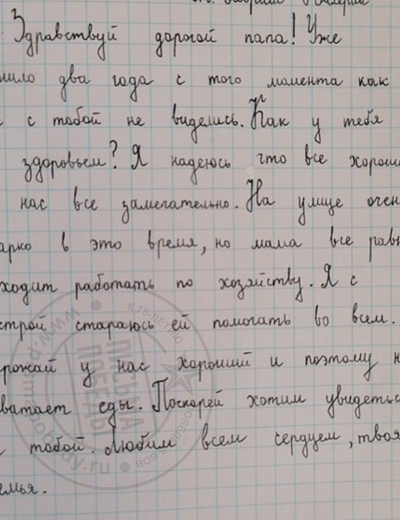 Здравствуй дорогой папа! Уже
шло два года с того момента как
с тобой не виделись. Как у тебя
здоровьем? Я надеюсь что все хорошо
нас все замечательно. На улице очен
арко в это время, но мама все равн
ходит работать по хозяйству. Я с
строй стараюсь ей помогать во всем.
рожай у нас хороший и поэтому н
ватает еды. Поскорей хотим увидеться
тобой. Любим всем сердцем, твоя
емья.